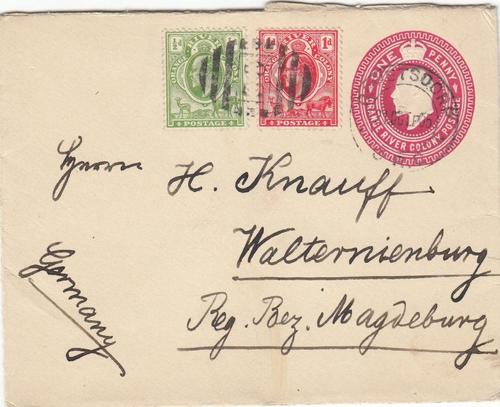 ½d ORANGE RIVER COLONY POSTAGE
1d ORANGE RIVER COLONY POSTAGE
ONE PENNY
ORANGE RIVER COLONY
Herrn H. Knauff
Walternienburg
Reg. Bez. Magdeburg
Germany